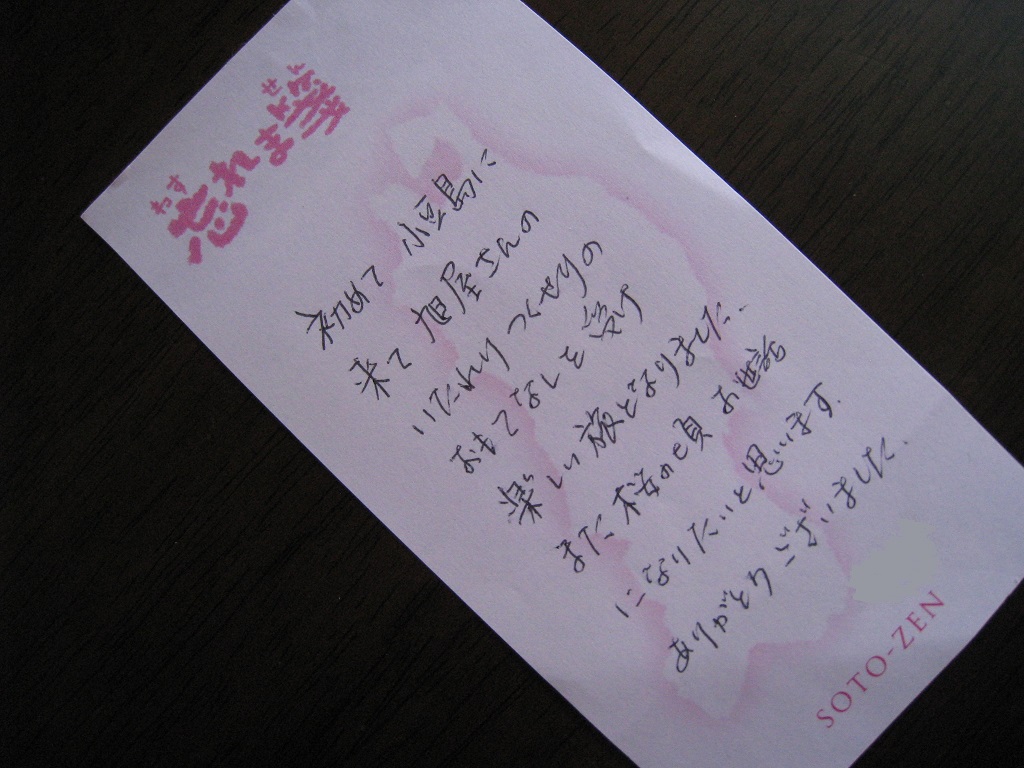 わす せん
忘れま禅
初めて 小豆島に
来て 旭屋さんの
いたれり つくせりの
おもてなしを 受け
楽しい 旅となりました.
また 桜の頃 お世話
になりたいと思います.
ありがとうございました.
SOTO-ZEN